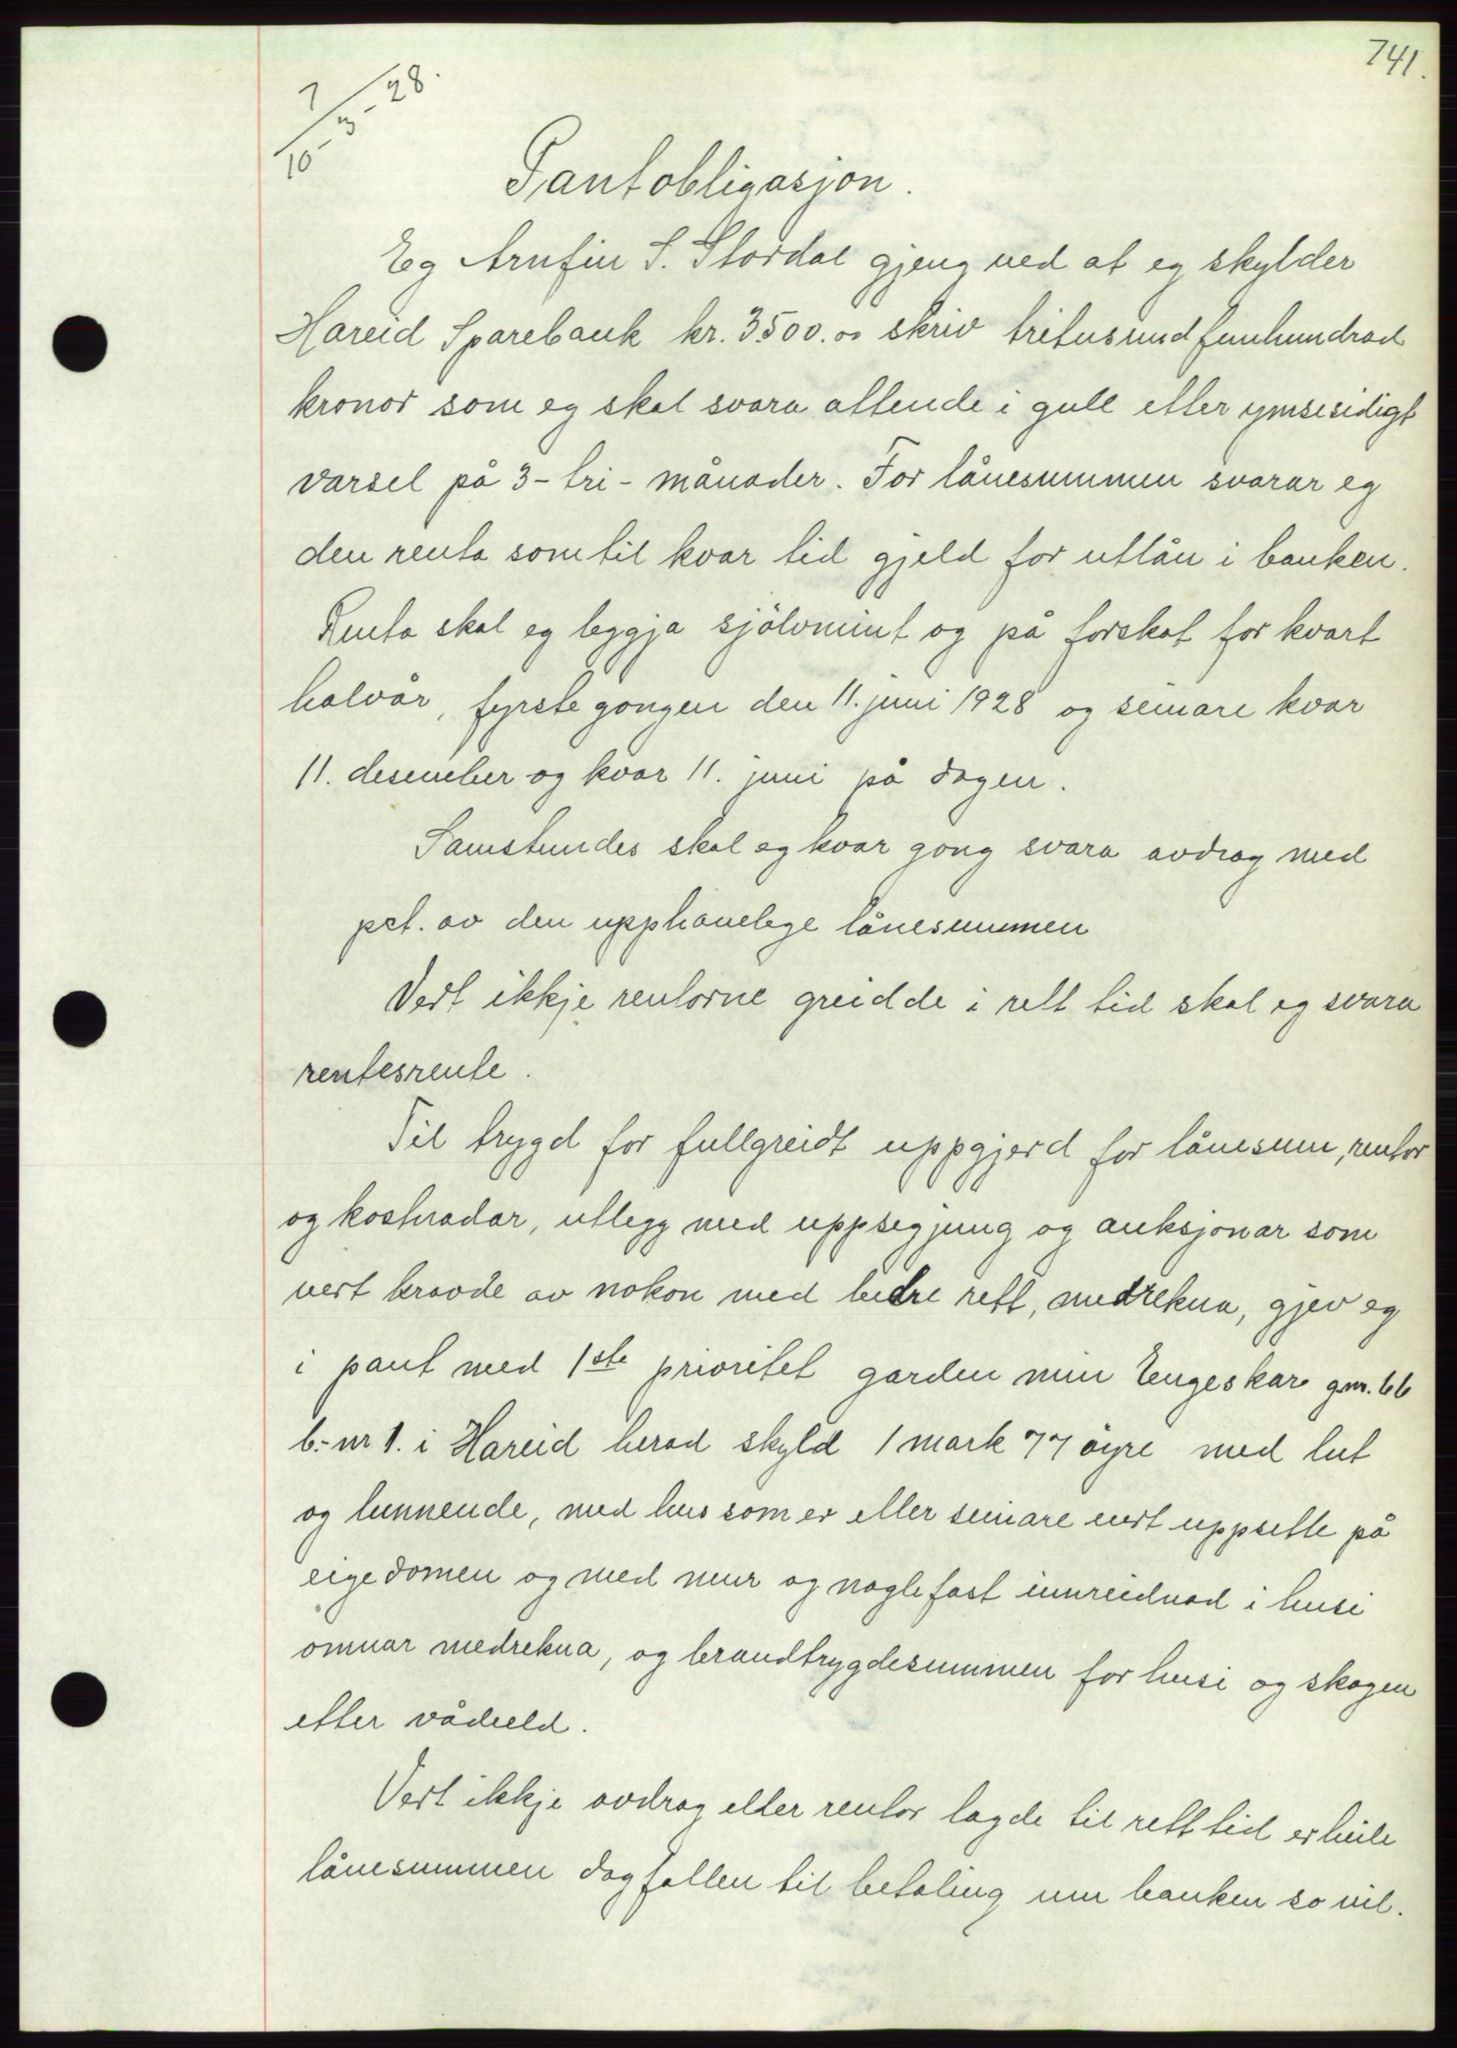 741.
7/10-3-28.
Pantobligasjon.
Eg Arnfin S. Stordal gjeng ved at eg skylder
Hareid Sparebank kr. 3500.00 skriv tritusund femhundrad
kronor som eg skal svara attende i gull etter ymsesidigt
varsel på 3- tri- månader. For lånesummen svarar eg
den renta som til kvar tid gjeld for utlån i banken.
Renta skal eg leggja sjölvmint og på forskot for kvart
halvår, fyrste gongen den 11. juni 1928 og seinare kvar
11. desember og kvar 11. juni på dagen.
Samstundes skal eg kvar gong svara avdrag med
pct. av den upphavelege lånesummen
Vert ikkje rentorne greidde i rett tid skal eg svara
rentesrente.
Til trygd for fullgreidt uppgjerd for lånesum, rentor
og kostnadar, utlegg med uppsegjing og auksjonar som
vert kravde av nokon med bedre rett, medrekna, gjev eg
i pant med 1ste prioritet garden min Engeskar g.nr. 66
b.-nr 1. i Hareid herad skyld 1 mark 77 öyre med lut
og lunnende, med hus som er eller seinare vert uppsette på
eigedomen og med mur og naglefast innreidnad i husi
omnar medrekna, og brandtrygdesummen for husi og skogen
etter vådeeld.
Vert ikkje avdrag eller rentor lagde til rett tid er heile
lånesummen dagfallen til betaling um banken so vil.